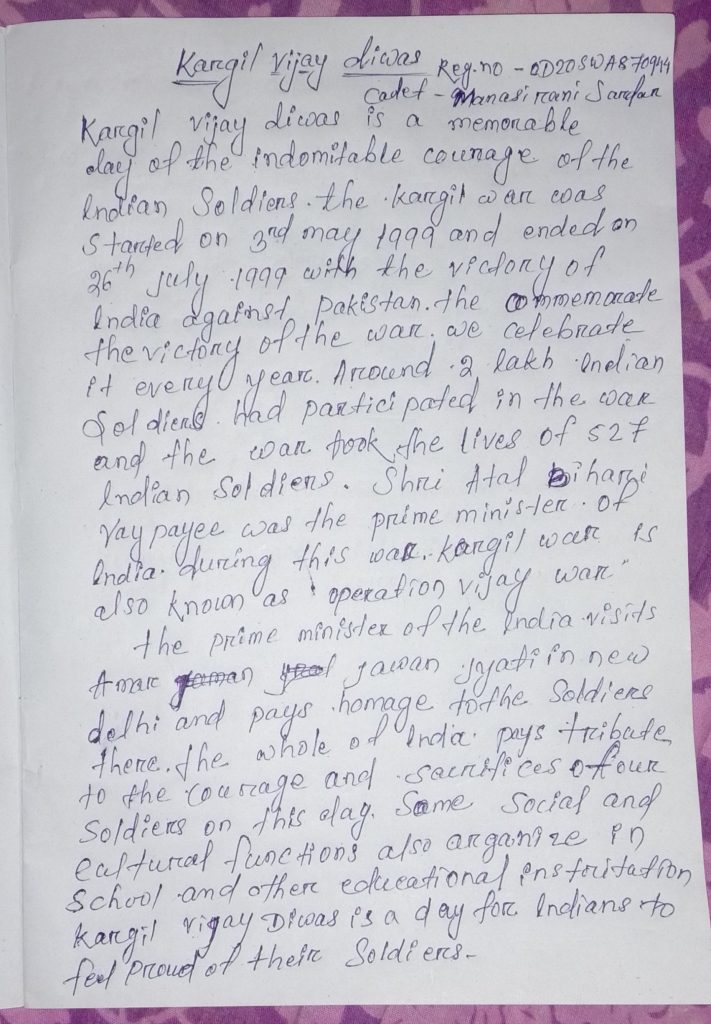 Kargil Vijay diwas Reg.no - OD20SWA870944
Cadet - Manasi rani Sardar
Kargil Vijay diwas is a memorable
day of the indomitable courage of the
Indian Soldiers. the kargil war was
Started on 3rd may 1999 and ended on
26th july 1999 with the victory of
India against pakistan. the commemorate
the victory of the war. we celebrate
it every year. Around 2 lakh Indian
Soldiers had participated in the war
and the war took the lives of 527
Indian Soldiers. Shri Atal Bihari
Vaypayee was the prime minister of
India. during this war. kargil war is
also known as "operation vijay war"
the prime minister of the India visits
Amar jawan jyati in new
delhi and pays homage to the Soldiers
there. the whole of India pays tribute
to the courage and sacrifices of our
Soldiers on this day. Some Social and
cultural functions also arganize in
School and other educational
Kargil vijay Diwas is a day for Indians to
feel Proud of their Soldiers-